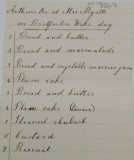 at Mrs Myatt
on Bradfor Wake day
1 Bread and butter
2 Bread and marmalade
3 Bread and vegetable marrow jam
4 Plum cake
5 Bread and butter
6 Plum cake
7 Stewed rhubarb
8 Custard
9 Biscuit